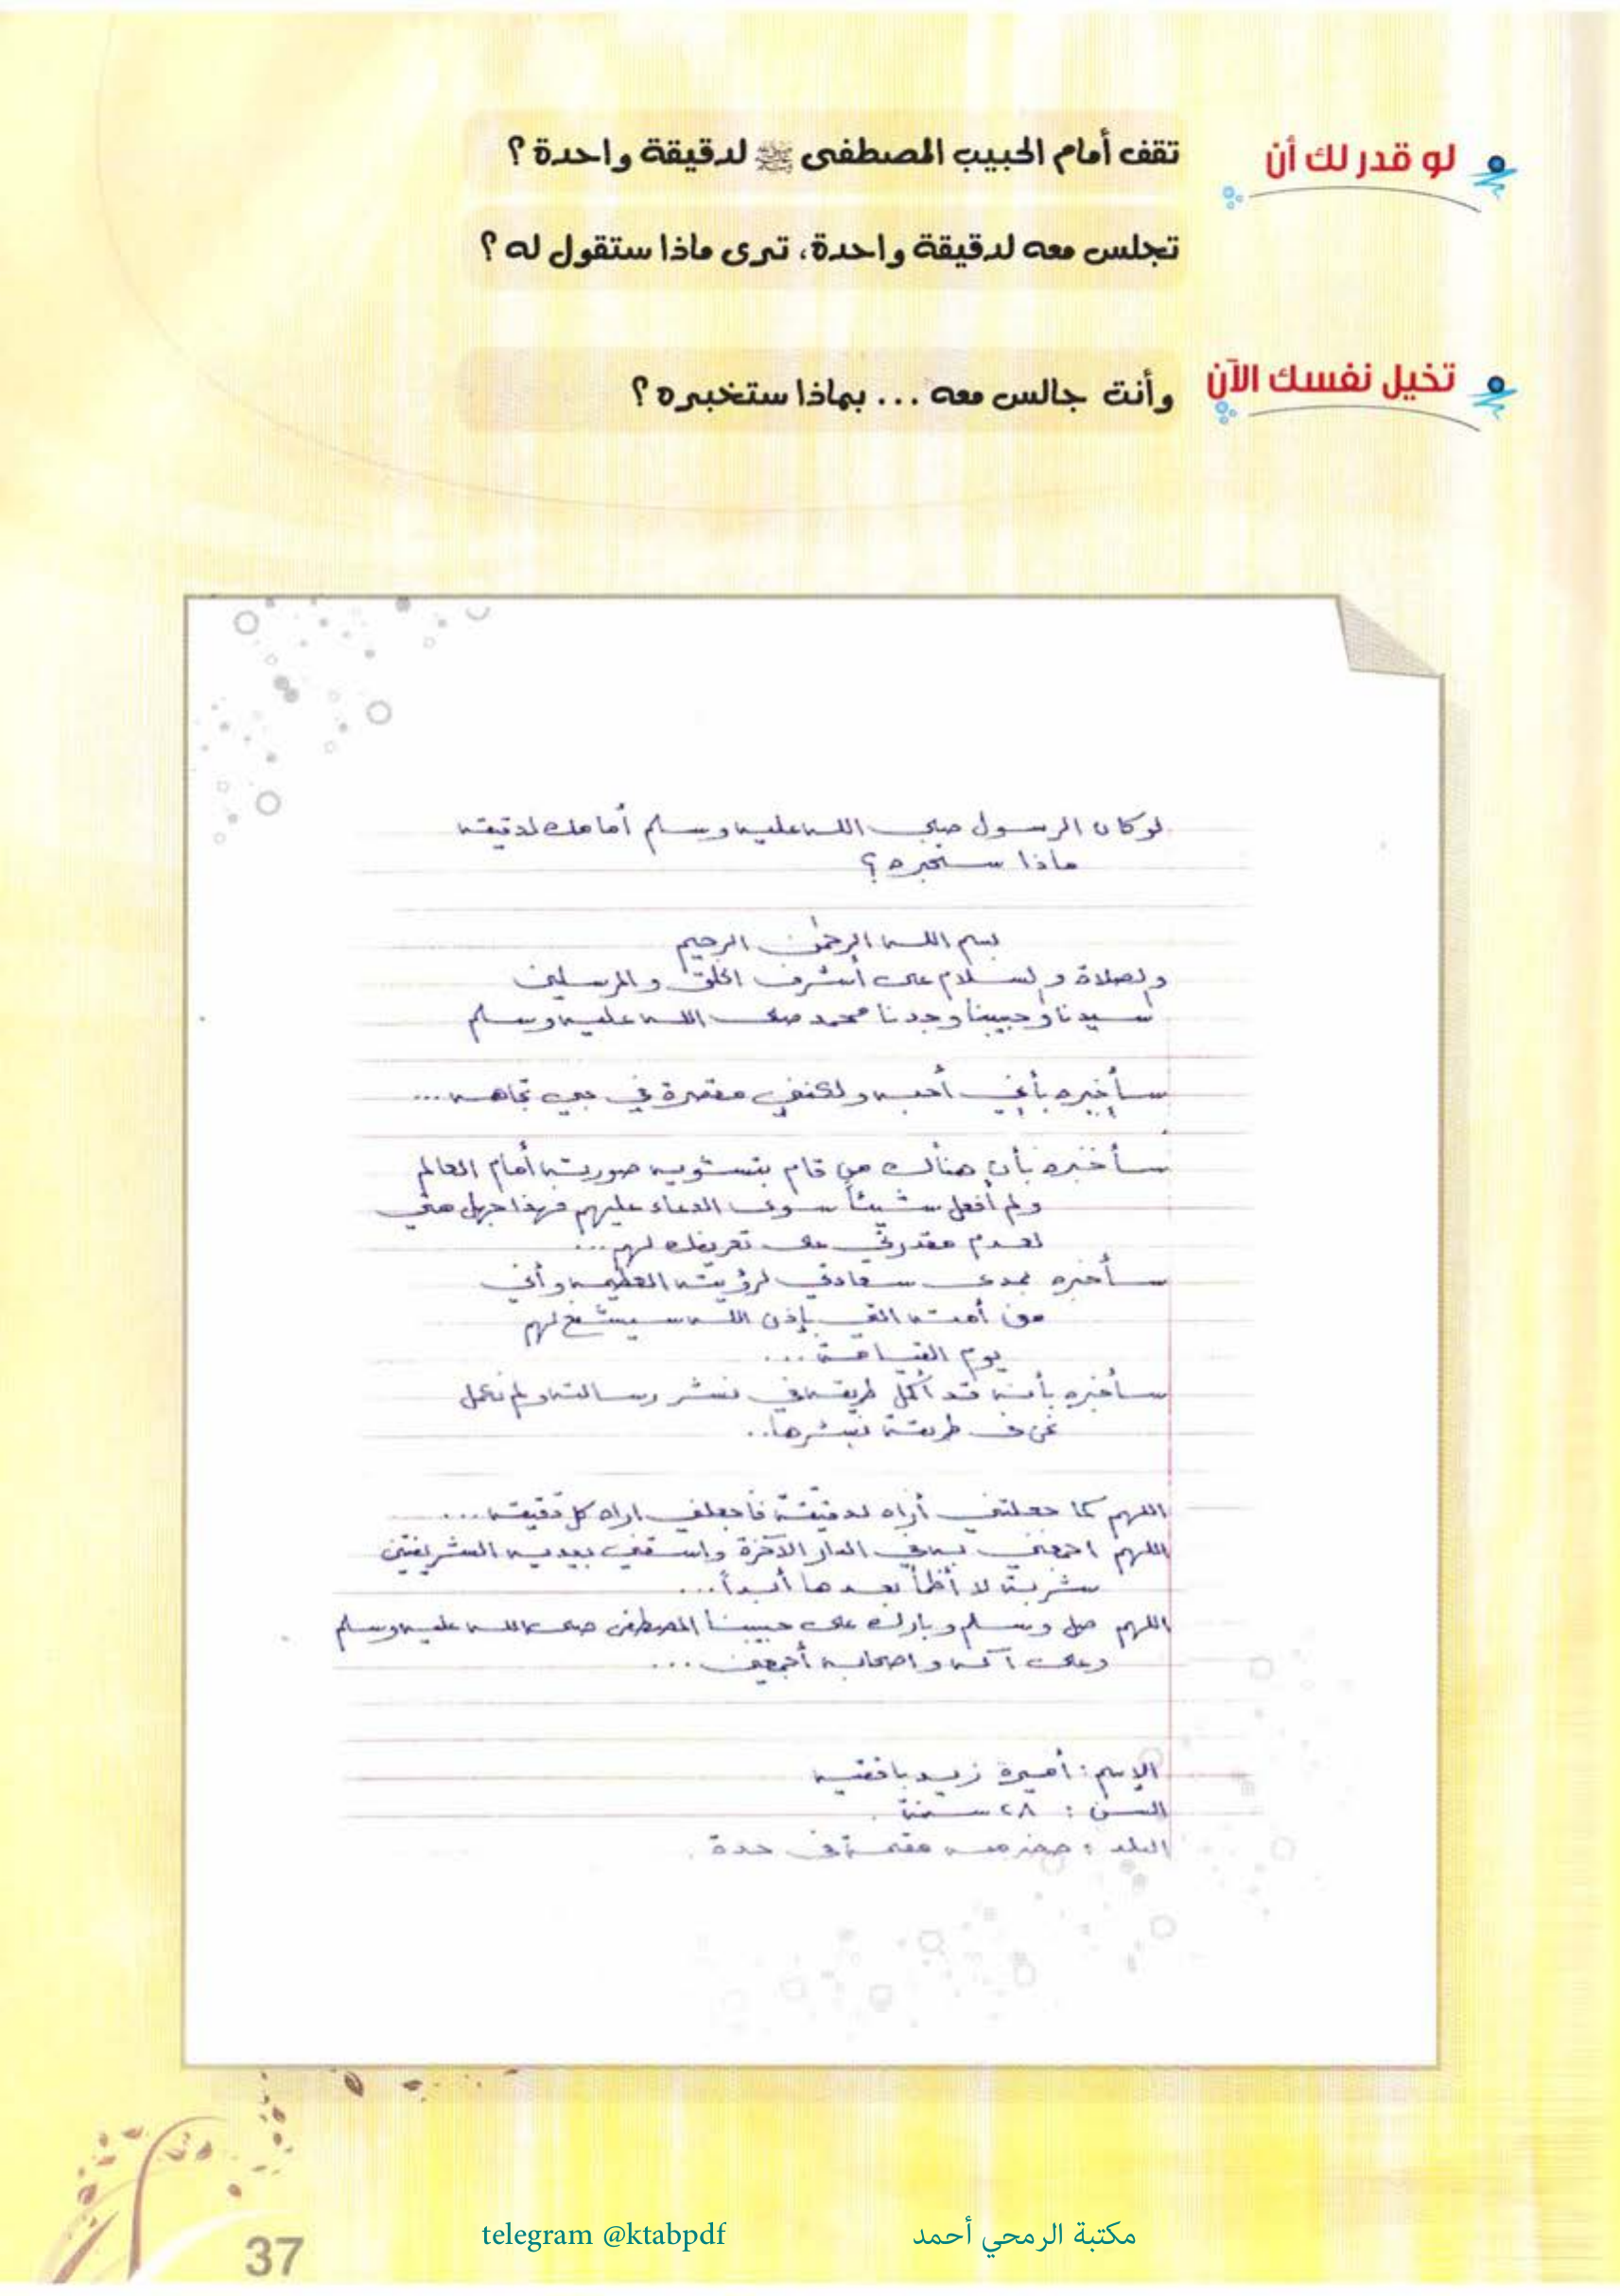 لو قدر لك أن تقف أمام الحبيب المصطفى ﷺ لدقيقة واحدة ؟
تجلس معه لدقيقة واحدة، ترى ماذا ستقول له ؟
تخيل نفسك الآن وأنت جالس معه ... بماذا ستخبره ؟
لو كان الرسول صلى الله عليه وسلم أمامك لدقيقه
ماذا ستخبره ؟
بسم الله الرحمن الرحيم
والصلاة والسلام على أشرف الخلق والمرسلين
سيدنا وحبيبنا وجدنا محمد صلى الله عليه وسلم
سأخبره بأني أحبه ولكنني مقصرة في حبي تجاهه ...
سأخبره بأن هناك من قام بتشويه صورته أمام العالم
ولم أفعل شيئاً سوى الدعاء عليهم فهذا جهل مني
لعدم مقدرتي على تعريفك لهم ...
سأخبره بمدى سعادتي لرؤيته العظيمه وأني
من أمته التي بإذن الله سيشفع لهم
يوم القيامة ...
سأخبره بأنه قد أكمل طريقه في نشر رسالته ولم نكمل
نحن في طريقة نشرها ..
اللهم كما جعلتني أراه لدقيقة فاجعلني اراه كل دقيقه ...
اللهم اجمعني به في الدار الآخرة واسقني بيديه الشريفتين
شربة لا أظمأ بعدها أبداً ...
اللهم صل وسلم وبارك على حبيبنا المصطفى صلى الله عليه وسلم
وعلى آله واصحابه أجمعين ...
الإسم : أميرة زيد بافقيه
السن : ٢٨ سنة .
البلد : حضرميه مقيمة في جدة .
مكتبة الرمحي أحمد telegram @ktabpdf
37